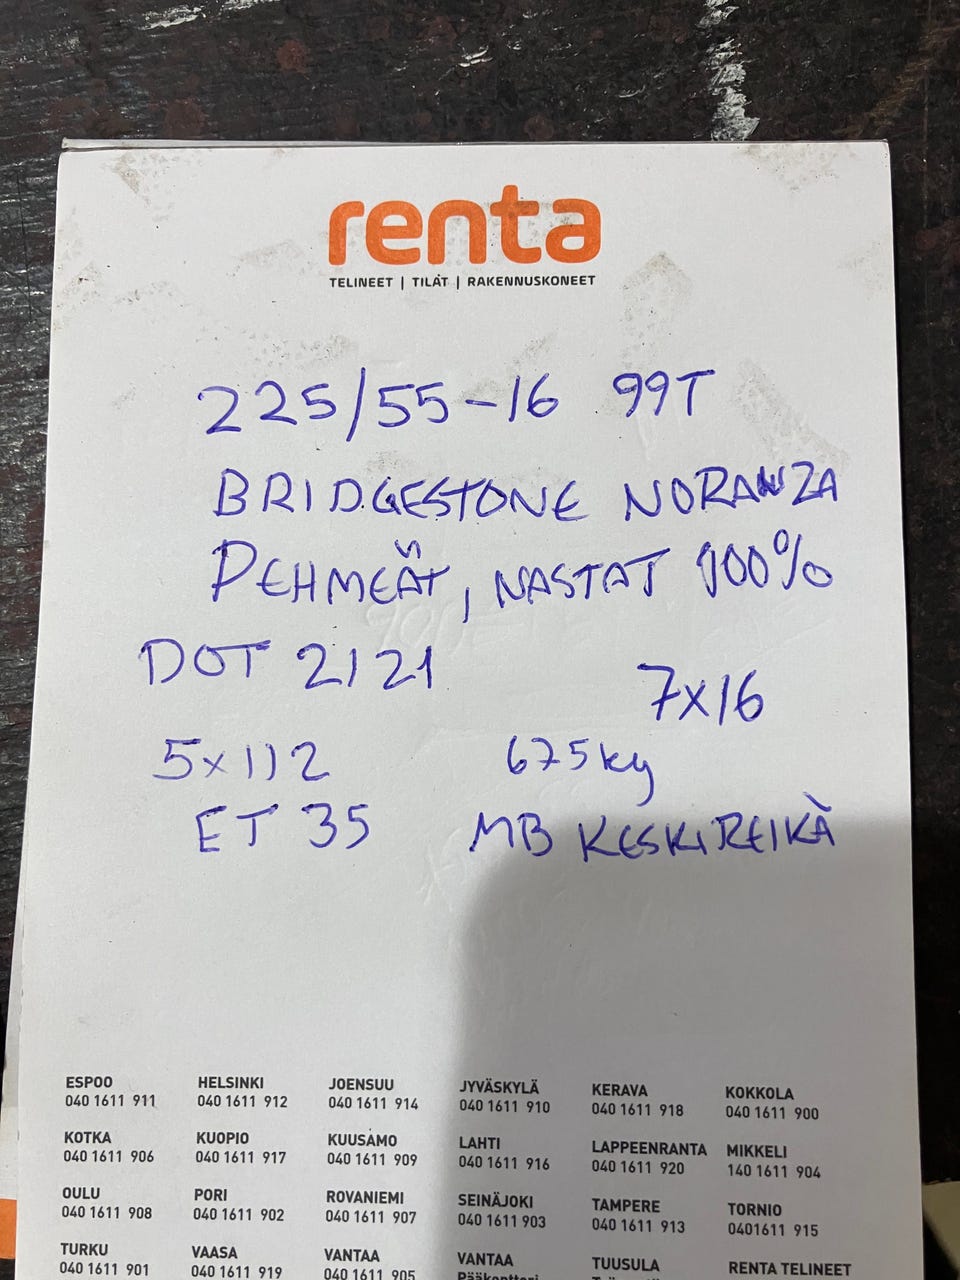 renta
TELINEET | TILAT | RAKENNUSKONEET
225/55-16 99T
BRIDGESTONE NORANZA
PEHMEÄT, NASTAT 100%
DOT 2121
7x16
5x112
675kg
ET 35
MB KESKIREIKÄ
ESPOO HELSINKI JOENSUU JYVÄSKYLÄ KERAVA KOKKOLA
040 1611 911 040 1611 912 040 1611 914 040 1611 910 040 1611 918 040 1611 900
KOTKA KUOPIO KUUSAMO LAHTI LAPPEENRANTA MIKKELI
040 1611 906 040 1611 917 040 1611 909 040 1611 916 040 1611 920 140 1611 904
OULU PORI ROVANIEMI SEINÄJOKI TAMPERE TORNIO
040 1611 908 040 1611 902 040 1611 907 040 1611 903 040 1611 913 0401611 915
TURKU VAASA VANTAA VANTAA TUUSULA RENTA TELINEET
040 1611 901 040 1611 919 040 1611 905 Pääkonttori